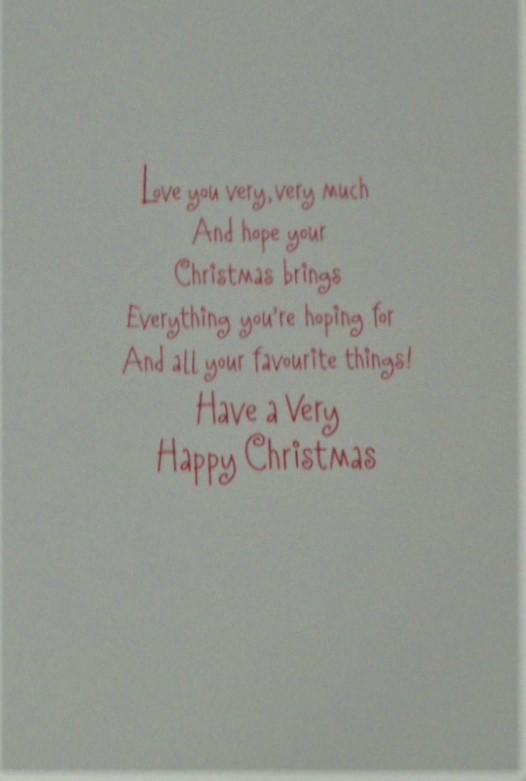 Love you very, very much
And hope your
Christmas brings
Everything you're hoping for
And all your favourite things!
Have a Very
Happy Christmas